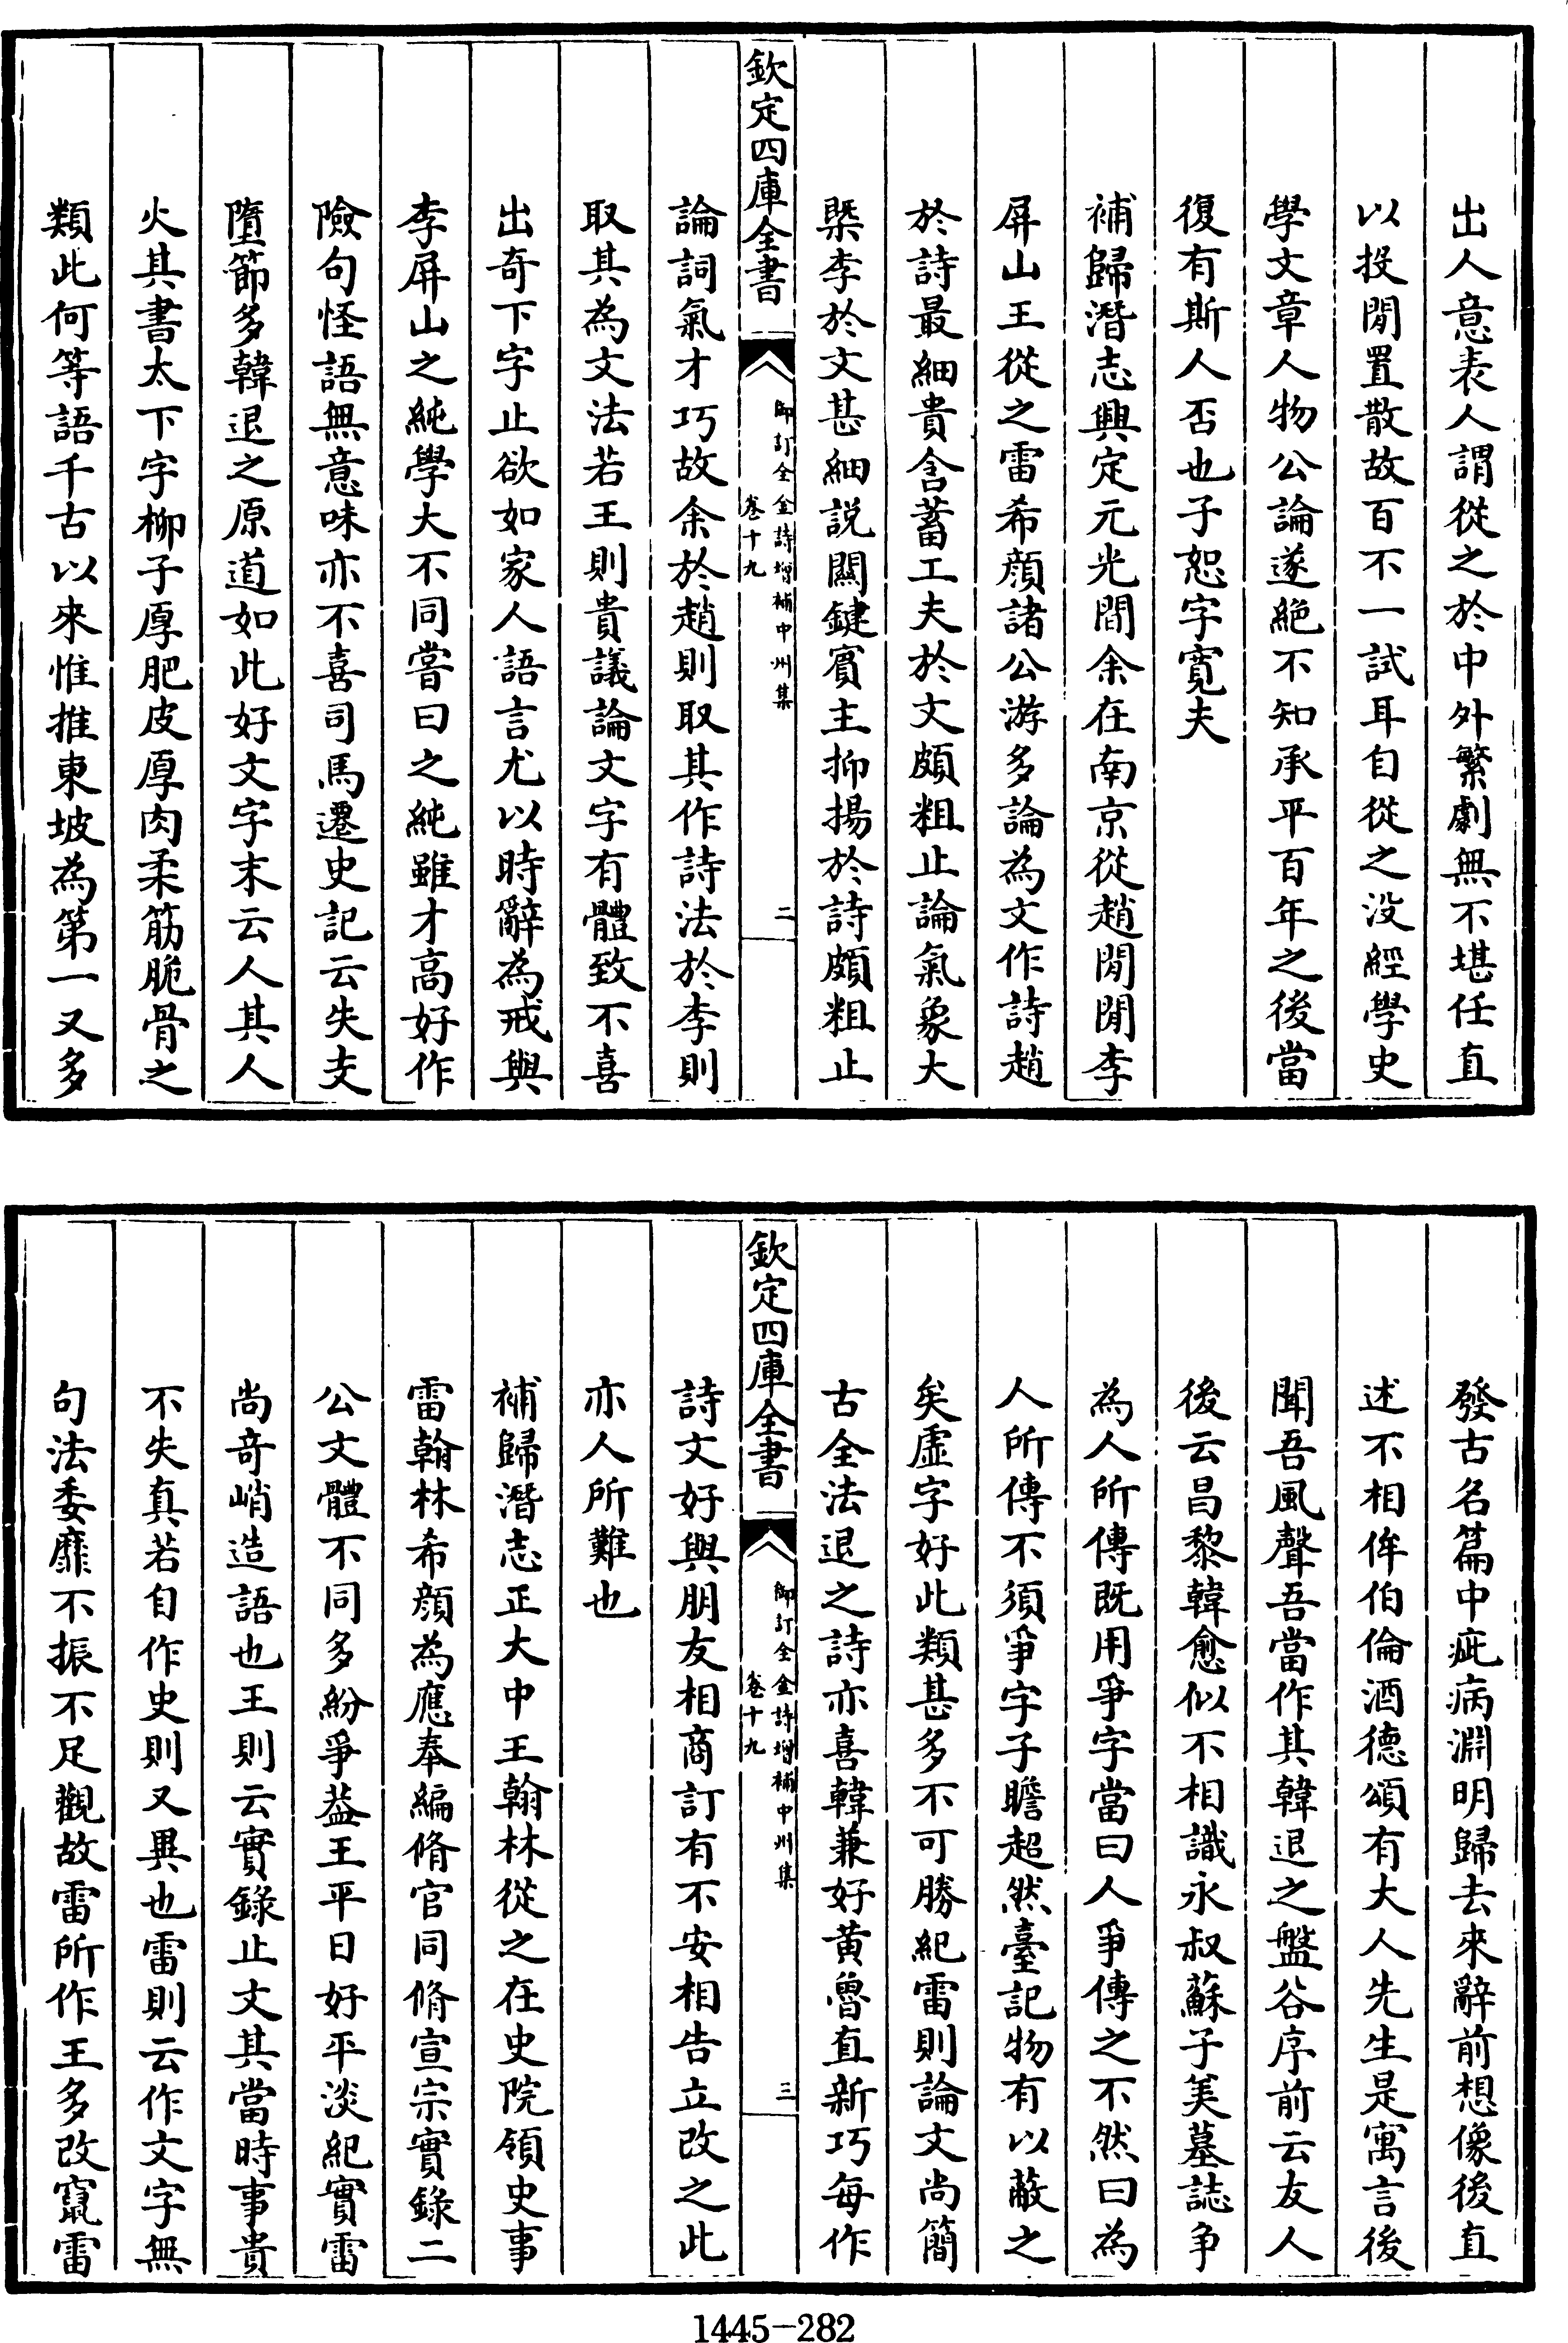 出人意表人謂從之於中外繁劇無不堪任直
以投閒置散故百不一試耳自從之沒經學史
學文章人物公論遂絕不知承平百年之後當
復有斯人否也子恕字寛夫
補歸潛志興定元光間余在南京從趙閒閒李
屏山王從之雷希顔諸公游多論為文作詩趙
於詩最細貴含蓄工夫於文頗粗止論氣象大
槩李於文甚細說關鍵賓主抑揚於詩頗粗止
欽定四庫全書
御訂全金詩增補中州集
卷十九
二
論詞氣才巧故余於趙則取其作詩法於李則
取其為文法若王則貴議論文字有體致不喜
出奇下字止欲如家人語言尤以時辭為戒與
李屏山之純學大不同嘗曰之純雖才高好作
險句怪語無意味亦不喜司馬遷史記云失支
墮節多韓退之原道如此好文字末云人其人
火其書太下字柳子厚肥皮厚肉柔筋脆骨之
類此何等語千古以來惟推東坡為第一又多
發古名篇中疵病淵明歸去來辭前想像後直
述不相侔伯倫酒德頌有大人先生是寓言後
聞吾風聲吾當作其韓退之盤谷序前云友人
後云昌黎韓愈似不相識永叔蘇子美墓誌爭
為人所傳既用爭字當曰人爭傳之不然曰為
人所傳不須爭字子瞻超然臺記物有以蔽之
矣虛字好此類甚多不可勝紀雷則論文尚簡
古全法退之詩亦喜韓兼好黄魯直新巧每作
欽定四庫全書
御訂全金詩增補中州集
卷十九
三
詩文好與朋友相商訂有不安相告立改之此
亦人所難也
補歸潛志正大中王翰林從之在史院領史事
雷翰林希顔為應奉編脩官同脩宣宗實錄二
公文體不同多紛爭葢王平日好平淡紀實雷
尚奇峭造語也王則云實錄止文其當時事貴
不失真若自作史則又異也雷則云作文字無
句法委靡不振不足觀故雷所作王多改竄雷
1445-282